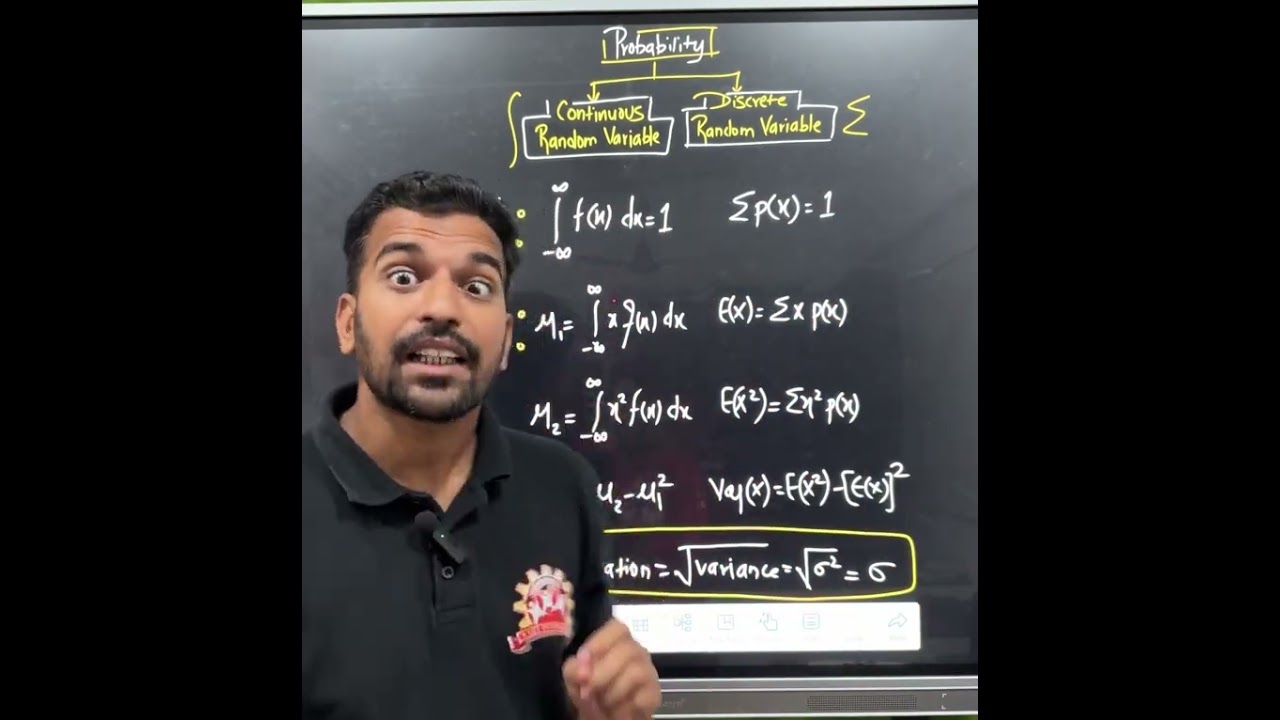 Probability
∫ Continuous Random Variable
Discrete Random Variable Σ
∫_{-∞}^{∞} f(x) dx = 1
Σ p(x) = 1
μ₁ = ∫_{-∞}^{∞} x f(x) dx
E(x) = Σ x p(x)
μ₂ = ∫_{-∞}^{∞} x² f(x) dx
E(x²) = Σ x² p(x)
μ₂ - μ₁²
Var(x) = E(x²) - [E(x)]²
ation = √variance = √σ² = σ